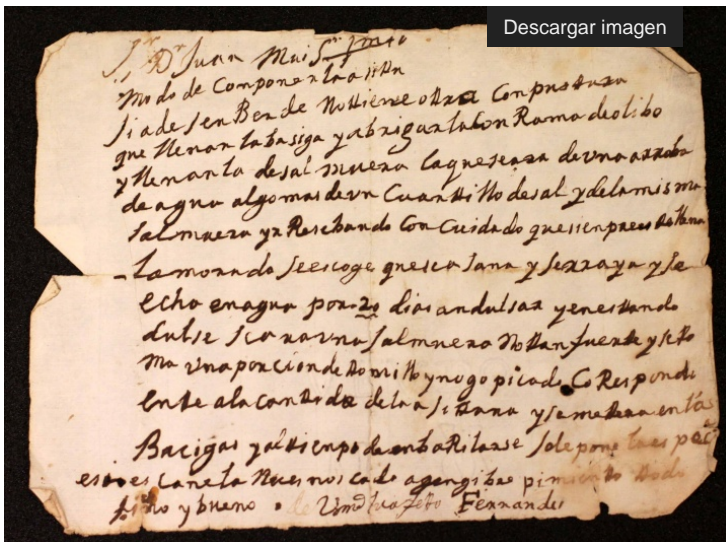 Descargar imagen
Sr Dr Juan
Modo de Componer la
si a de ser Berde No ttiene ottra Conpustura
que llenar la basiga y abrigarla Con Rama de olibo
y llenarla de sal muera la que se ara de una arroba
de agua algo mas de un Cuarttillo de sal y de la misma
salmuera yr Reschando Con Cuidado que sienpre
la morada se escoge que sea sana y se rraya y se
echa en agua por 20 dias a ndulsar y en esttando
dulse se ara una salmuera No ttan fuerte y se tto
ma una porcion de ttomillo y nogo picado CoResponde
ente a la canttida de la y se metera en las
Bacigas y al ttienpo de enbaRilarse se le pone la espeçi
esto es Canela Nues moscada agengibre pimiento ttodo
y bueno de Fernandes